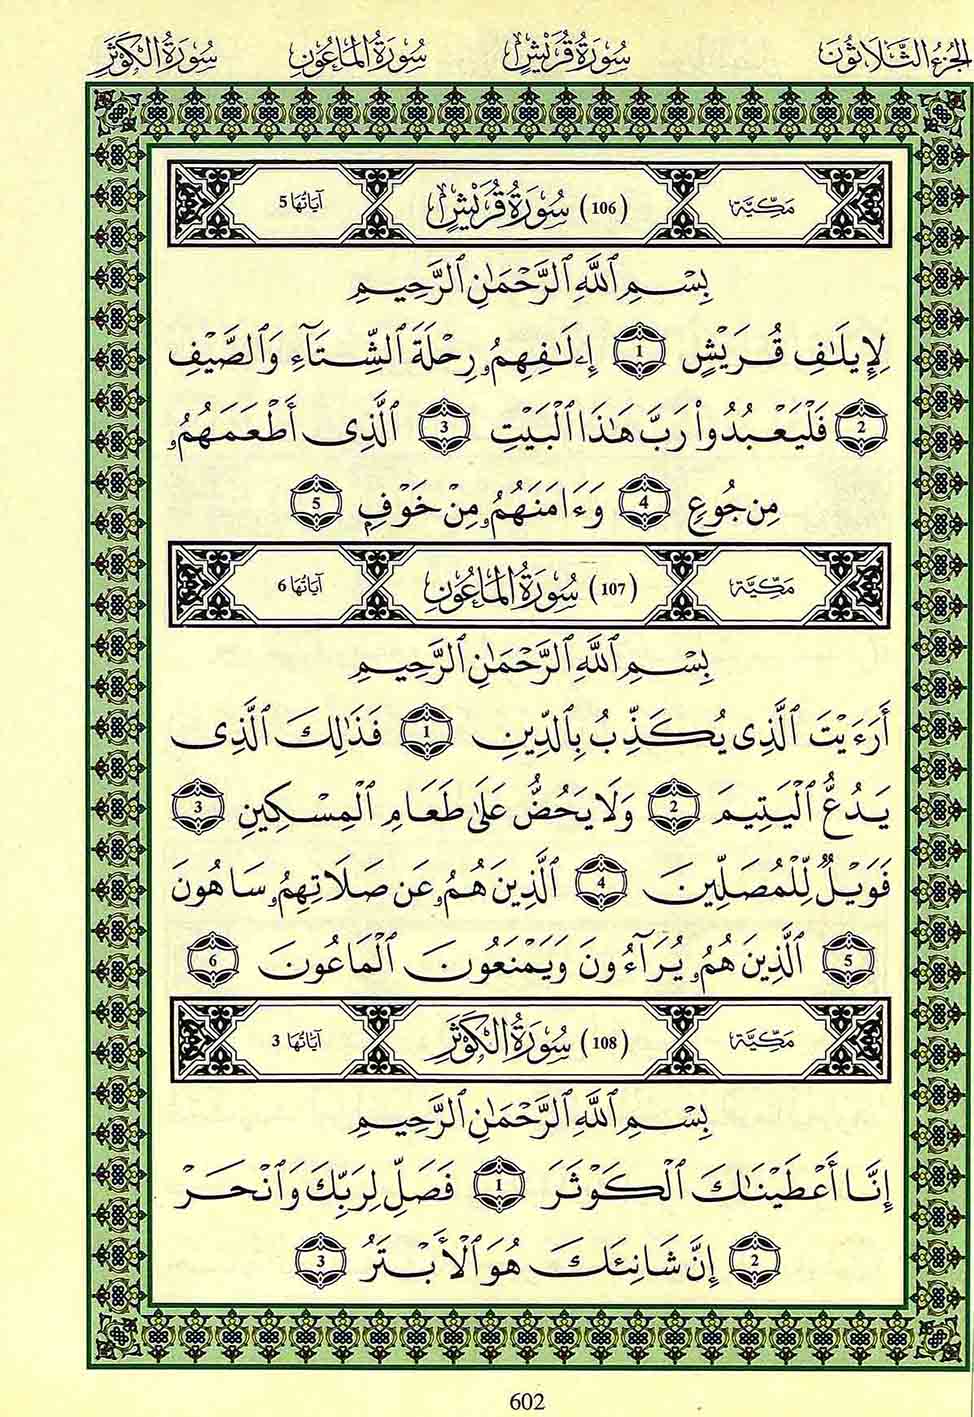 الجُزءُ الثَّلَاثُونَ سُورَةُ قُرَيْشٍ سُورَةُ المَاعُونِ سُورَةُ الكَوْثَرِ
مَكِّيَّة (106) سُورَةُ قُرَيْشٍ آيَاتُهَا 5
بِسْمِ اِ۬للَّهِ اِ۬لرَّحْمَٰنِ اِ۬لرَّحِيمِ
لِإِيلَٰفِ قُرَيْشٍ 1 إِۦلَٰفِهِمُۥ رِحْلَةَ اَ۬لشِّتَآءِ وَالصَّيْفِ
2 فَلْيَعْبُدُواْ رَبَّ هَٰذَا اَ۬لْبَيْتِ 3 اَ۬لَّذِى أَطْعَمَهُمُۥ
مِن جُوعٍ 4 وَءَامَنَهُمُۥ مِنْ خَوْفٍ 5
مَكِّيَّة (107) سُورَةُ المَاعُونِ آيَاتُهَا 6
بِسْمِ اِ۬للَّهِ اِ۬لرَّحْمَٰنِ اِ۬لرَّحِيمِ
أَرَءَيْتَ اَ۬لَّذِى يُكَذِّبُ بِالدِّينِ 1 فَذَٰلِكَ اَ۬لَّذِى
يَدُعُّ اُ۬لْيَتِيمَ 2 وَلَا يَحُضُّ عَلَىٰ طَعَامِ اِ۬لْمِسْكِينِ 3
فَوَيْلٌ لِّلْمُصَلِّينَ 4 اَ۬لَّذِينَ هُمُۥ عَن صَلَاتِهِمُۥ سَاهُونَ
5 اَ۬لَّذِينَ هُمُۥ يُرَآءُونَ وَيَمْنَعُونَ اَ۬لْمَاعُونَ 6
مَكِّيَّة (108) سُورَةُ الكَوْثَرِ آيَاتُهَا 3
بِسْمِ اِ۬للَّهِ اِ۬لرَّحْمَٰنِ اِ۬لرَّحِيمِ
إِنَّا أَعْطَيْنَٰكَ اَ۬لْكَوْثَرَ 1 فَصَلِّ لِرَبِّكَ وَانْحَرْ
2 إِنَّ شَانِئَكَ هُوَ اَ۬لْأَبْتَرُ 3
602